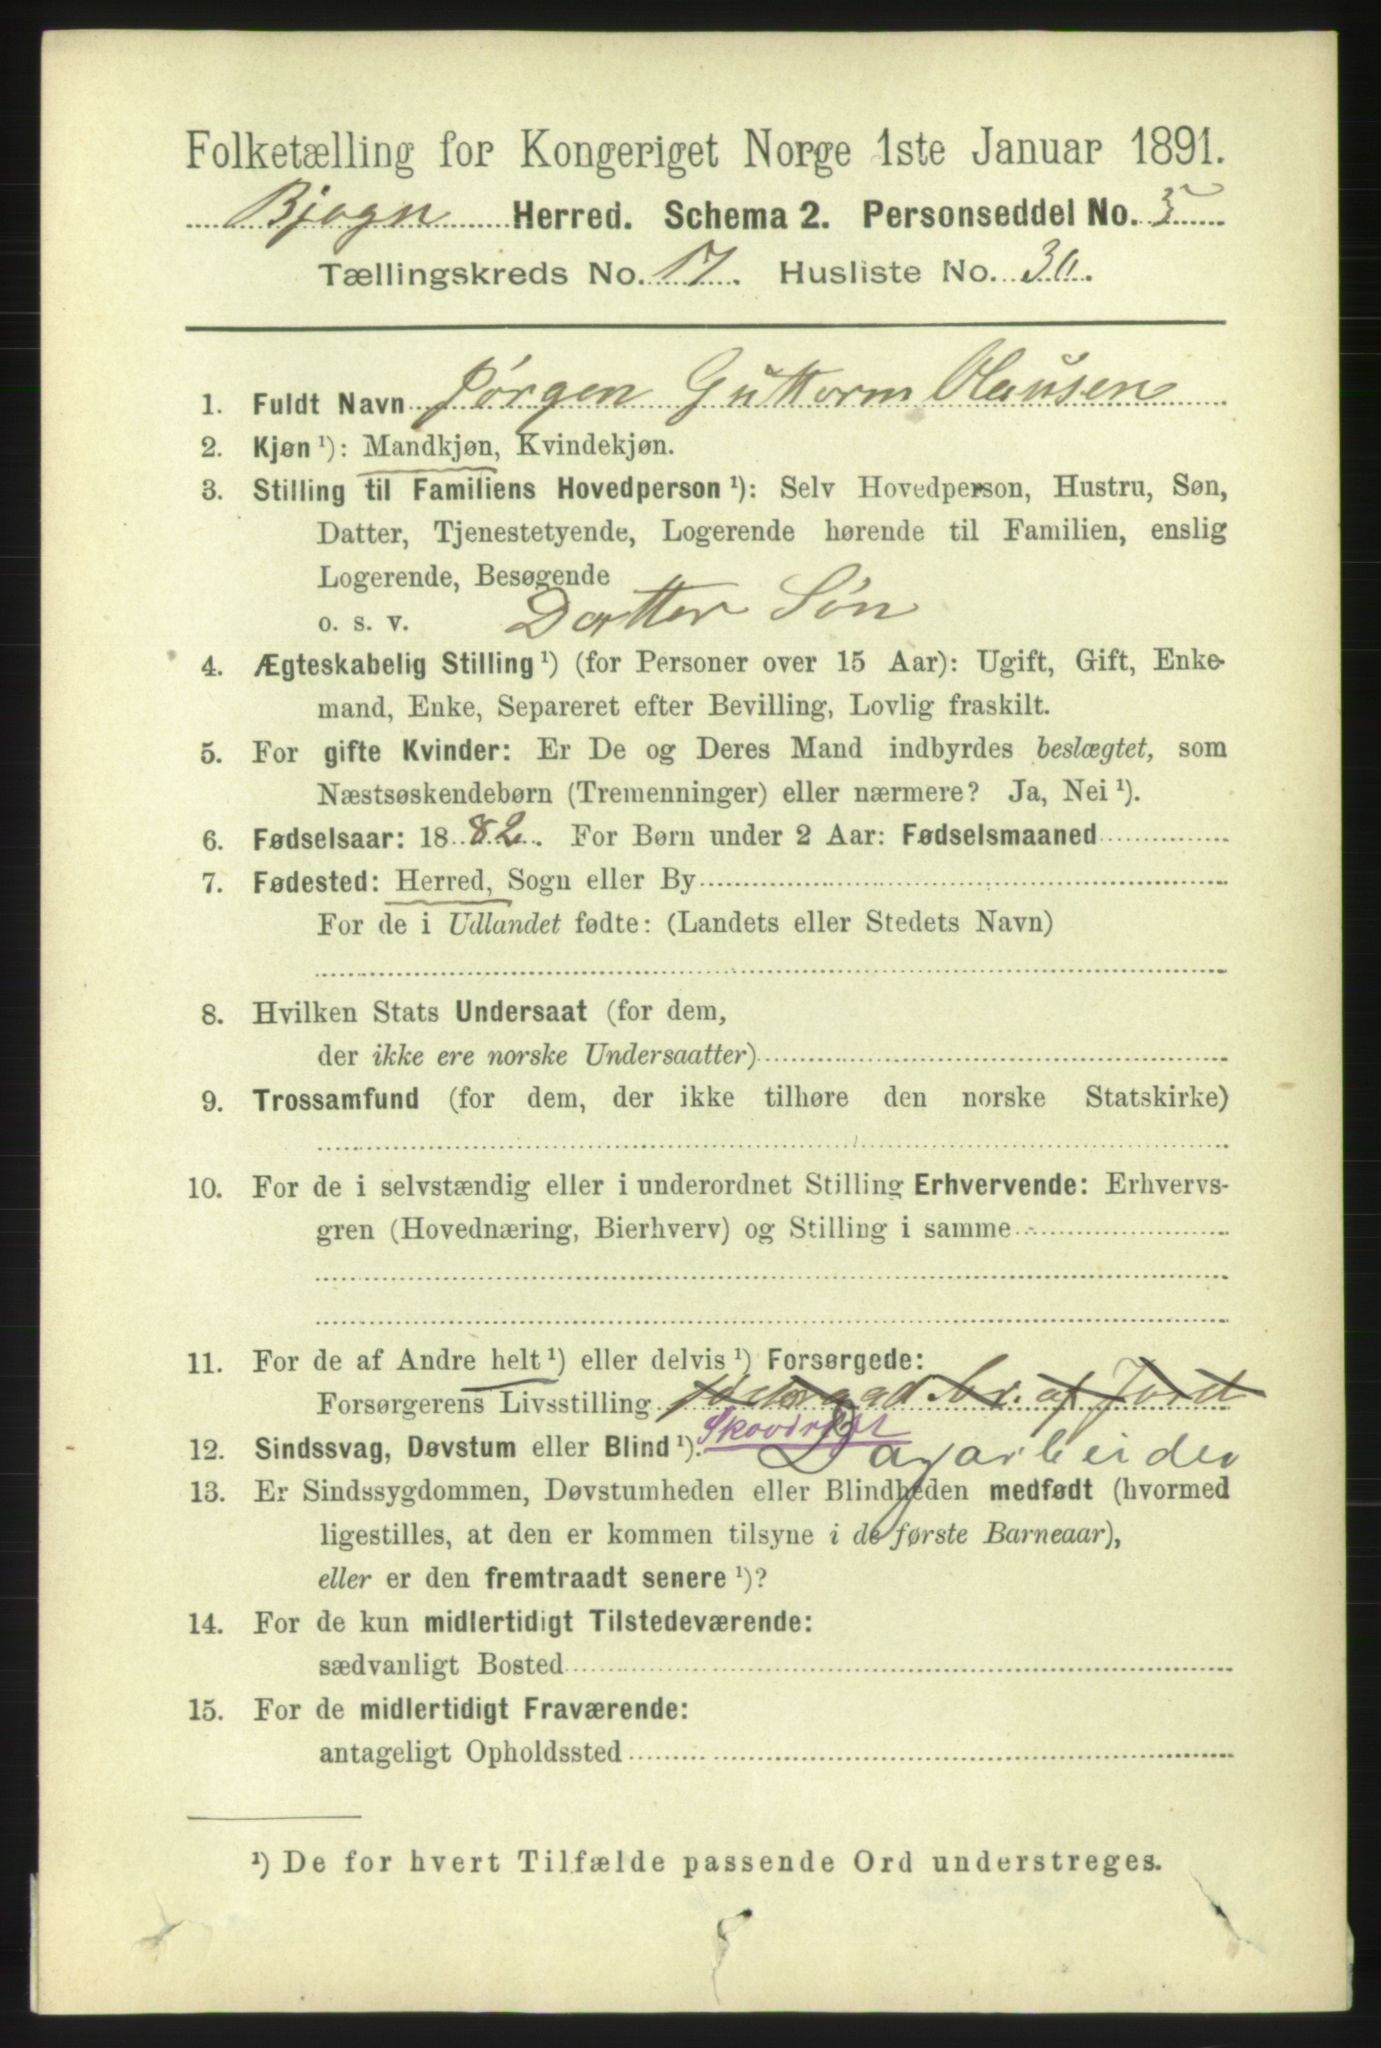 Folketælling for Kongeriget Norge 1ste Januar 1891.
Bjogn Herred. Schema 2. Personseddel No. 5
Tællingskreds No. 17. Husliste No. 30.
1. Fuldt Navn Jørgen Guttorm Olausen
2. Kjøn ¹): Mandkjøn, Kvindekjøn.
3. Stilling til Familiens Hovedperson ¹): Selv Hovedperson, Hustru, Søn,
Datter, Tjenestetyende, Logerende hørende til Familien, enslig
Logerende, Besøgende
o. s. v. Datter Søn
4. Ægteskabelig Stilling ¹) (for Personer over 15 Aar): Ugift, Gift, Enke-
mand, Enke, Separeret efter Bevilling, Lovlig fraskilt.
5. For gifte Kvinder: Er De og Deres Mand indbyrdes beslægtet, som
Næstsøskendebørn (Tremenninger) eller nærmere? Ja, Nei ¹).
6. Fødselsaar: 1882. For Børn under 2 Aar: Fødselsmaaned
7. Fødested: Herred, Sogn eller By
For de i Udlandet fødte: (Landets eller Stedets Navn)
8. Hvilken Stats Undersaat (for dem,
der ikke ere norske Undersaatter)
9. Trossamfund (for dem, der ikke tilhøre den norske Statskirke)
10. For de i selvstændig eller i underordnet Stilling Erhvervende: Erhvervs-
gren (Hovednæring, Bierhverv) og Stilling i samme
11. For de af Andre helt ¹) eller delvis ¹) Forsørgede:
Forsørgerens Livsstilling br. af Jord
Skovdrift
12. Sindssvag, Døvstum eller Blind ¹). Dagarbeider
13. Er Sindssygdommen, Døvstumheden eller Blindheden medfødt (hvormed
ligestilles, at den er kommen tilsyne i de første Barneaar),
eller er den fremtraadt senere ¹)?
14. For de kun midlertidigt Tilstedeværende:
sædvanligt Bosted
15. For de midlertidigt Fraværende:
antageligt Opholdssted
¹) De for hvert Tilfælde passende Ord understreges.